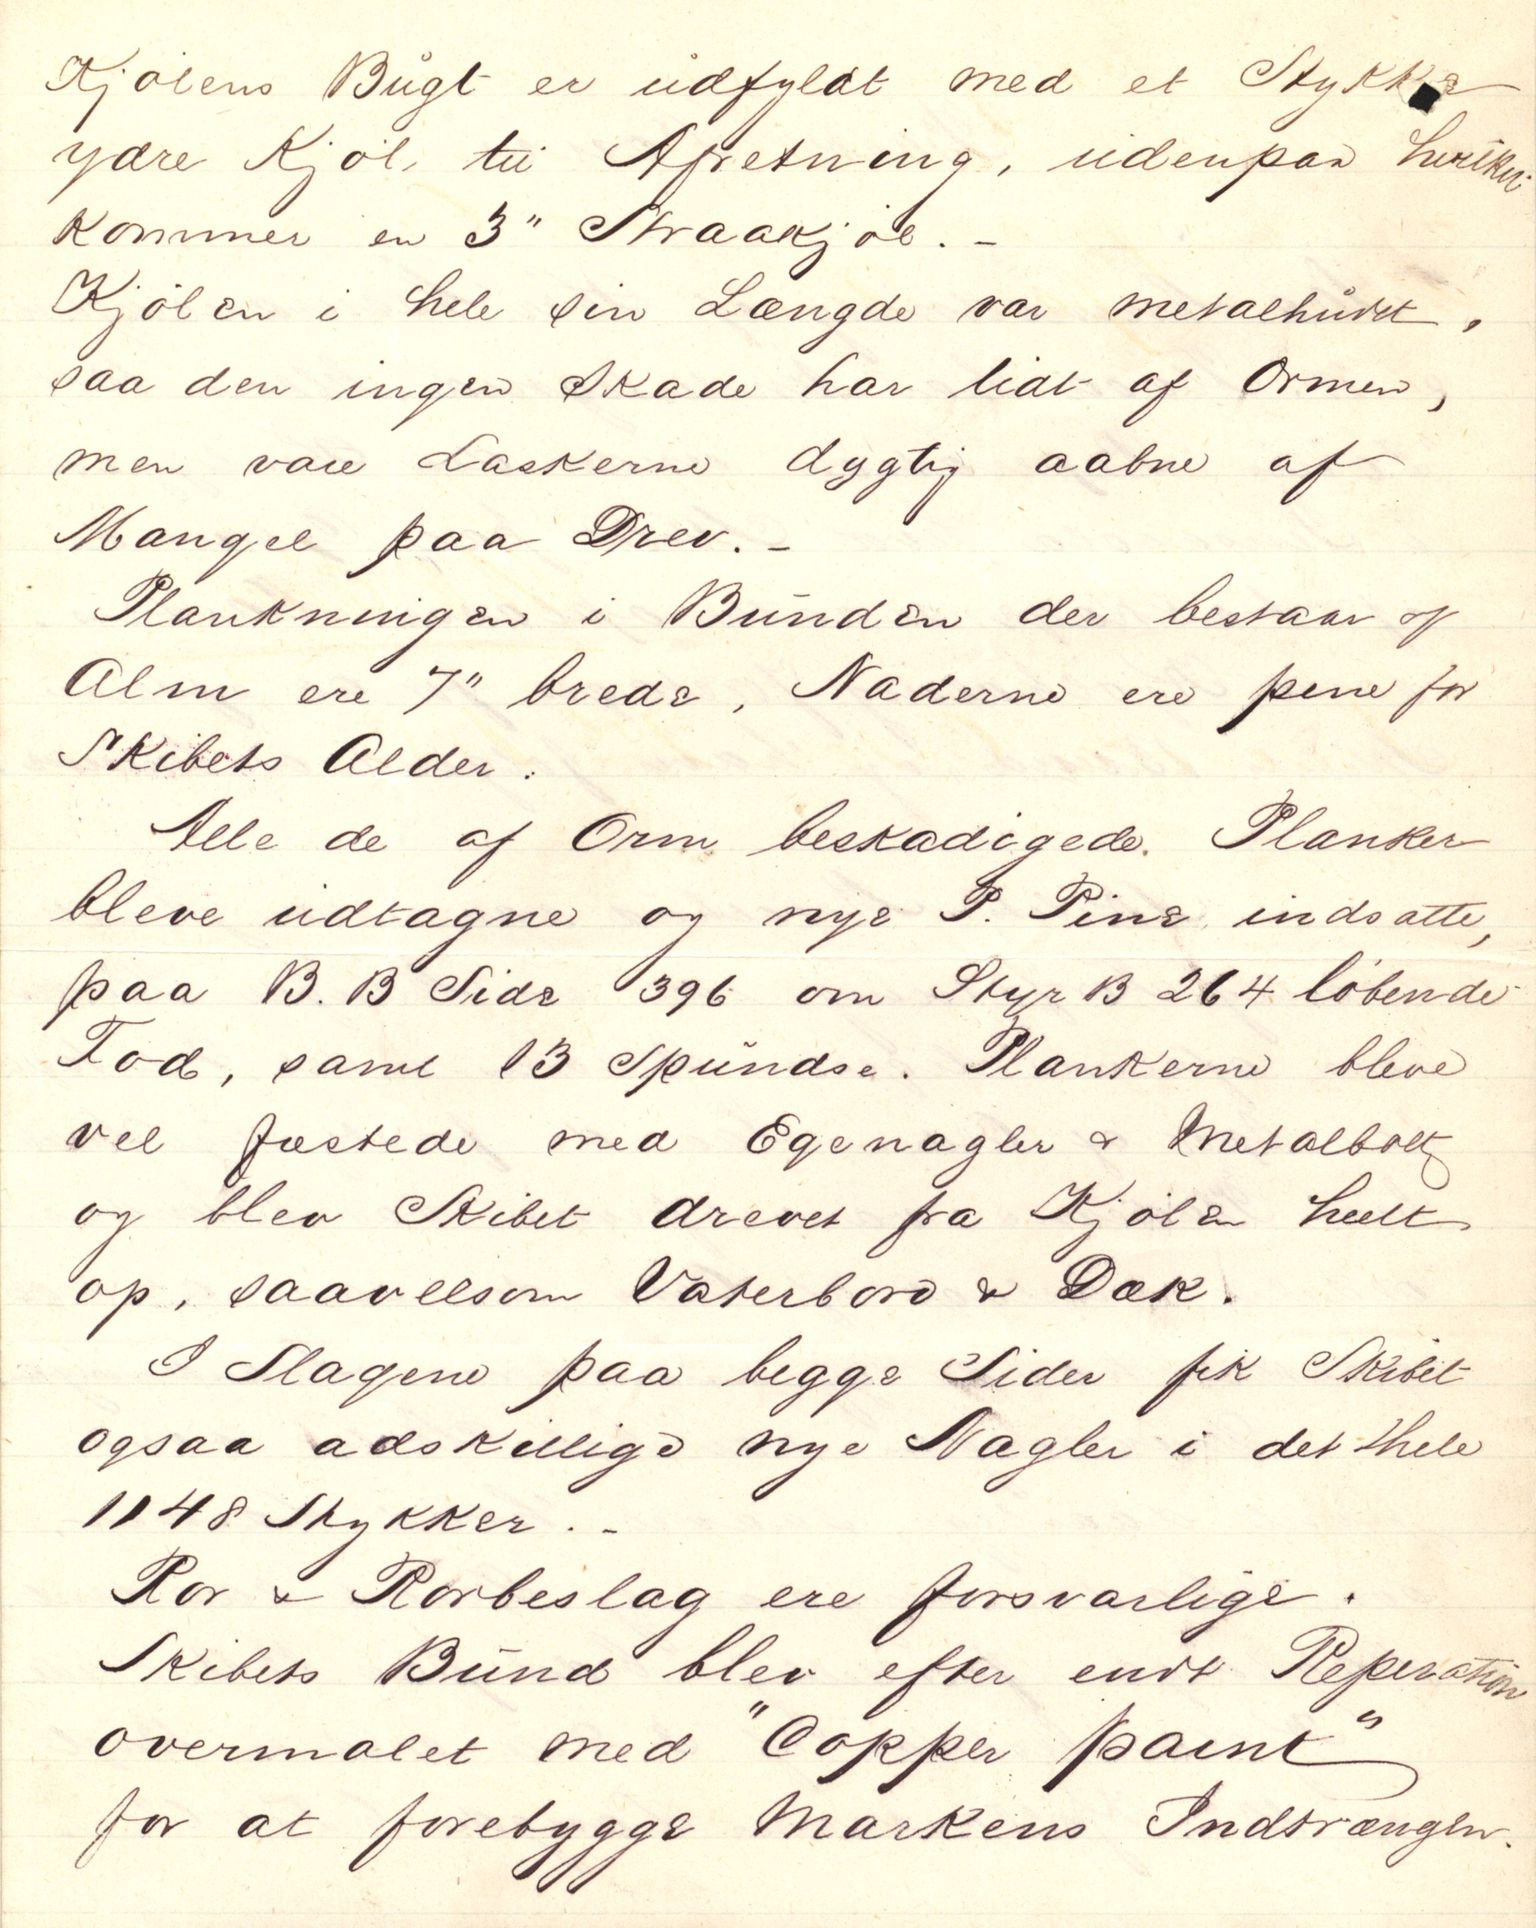 Kjølens Bugt er udfyldt med et Stykke
ydre Kjøl, til Afretning, udenpaa hvilken
kommer en 3" Straakjøl. -
Kjølen i hele sin Længde var metalhudet,
saa den ingen Skade har lidt af Ormen,
men vare Laskerne dygtig aabne af
Mangel paa Drev. -
Plankningen i Bunden der bestaar af
Alm ere 7" brede, Naderne ere pene for
Skibets Alder.
Alle de af Orm beskadigede Planker
bleve udtagne og nye P. Pine indsatte,
paa B. B Side 396 om Styr B 264 løbende
Fod, samt 13 Spundse. Plankerne bleve
vel fæstede med Egenagler & Metalbolt
og blev Skibet drevet fra Kjølen heelt
op, saavelsom Vaterbord & Dæk.
I Slagene paa begge Sider fik Skibet
ogsaa adskillige nye Nagler i det Hele
1148 Stykker. -
Ror & Rorbeslag ere forsvarlige.
Skibets Bund blev efter endt Reperation
overmalet med "Copper paint"
for at forebygge Markens Indtrængen.